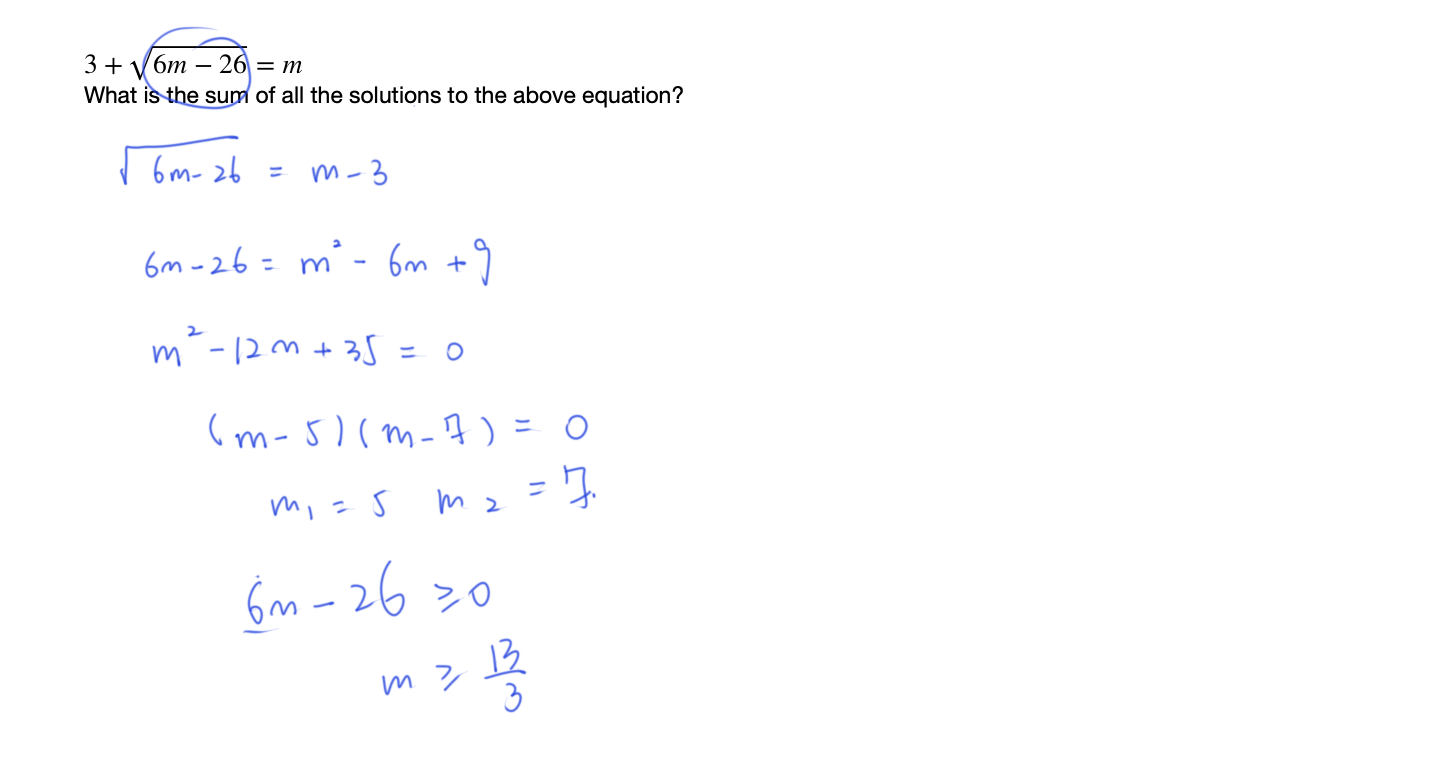 3 + √(6m − 26) = m
What is the sum of all the solutions to the above equation?
√(6m - 26) = m - 3
6m - 26 = m² - 6m + 9
m² - 12m + 35 = 0
(m - 5)(m - 7) = 0
m₁ = 5 m₂ = 7.
6m - 26 ≥ 0
m ≥ 13/3